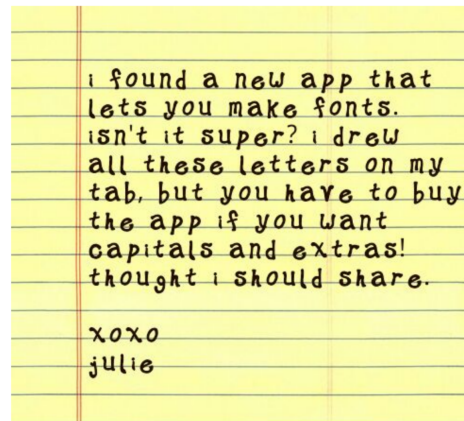 i found a new app that
lets you make fonts.
isn't it super? i drew
all these letters on my
tab, but you have to buy
the app if you want
capitals and extras!
thought i should share.
xoxo
julie